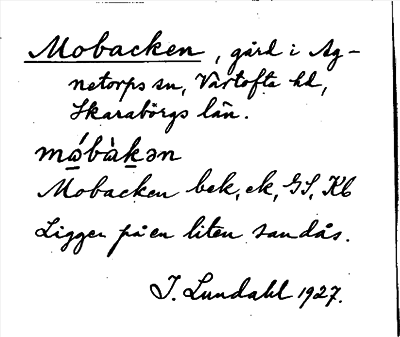 Mobacken, gård i Ag-
netorps sn, Vartofta hd,
Skaraborgs län.
mó̲bàk̲ən
Mobacken bek, ek, GS, Kb
Ligger på en liten sandås.
I. Lundahl 1927.